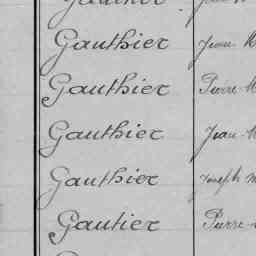 Gauthier Jean M
Gauthier Pierre M
Gauthier Jean M
Gauthier Joseph M
Gautier Pierre